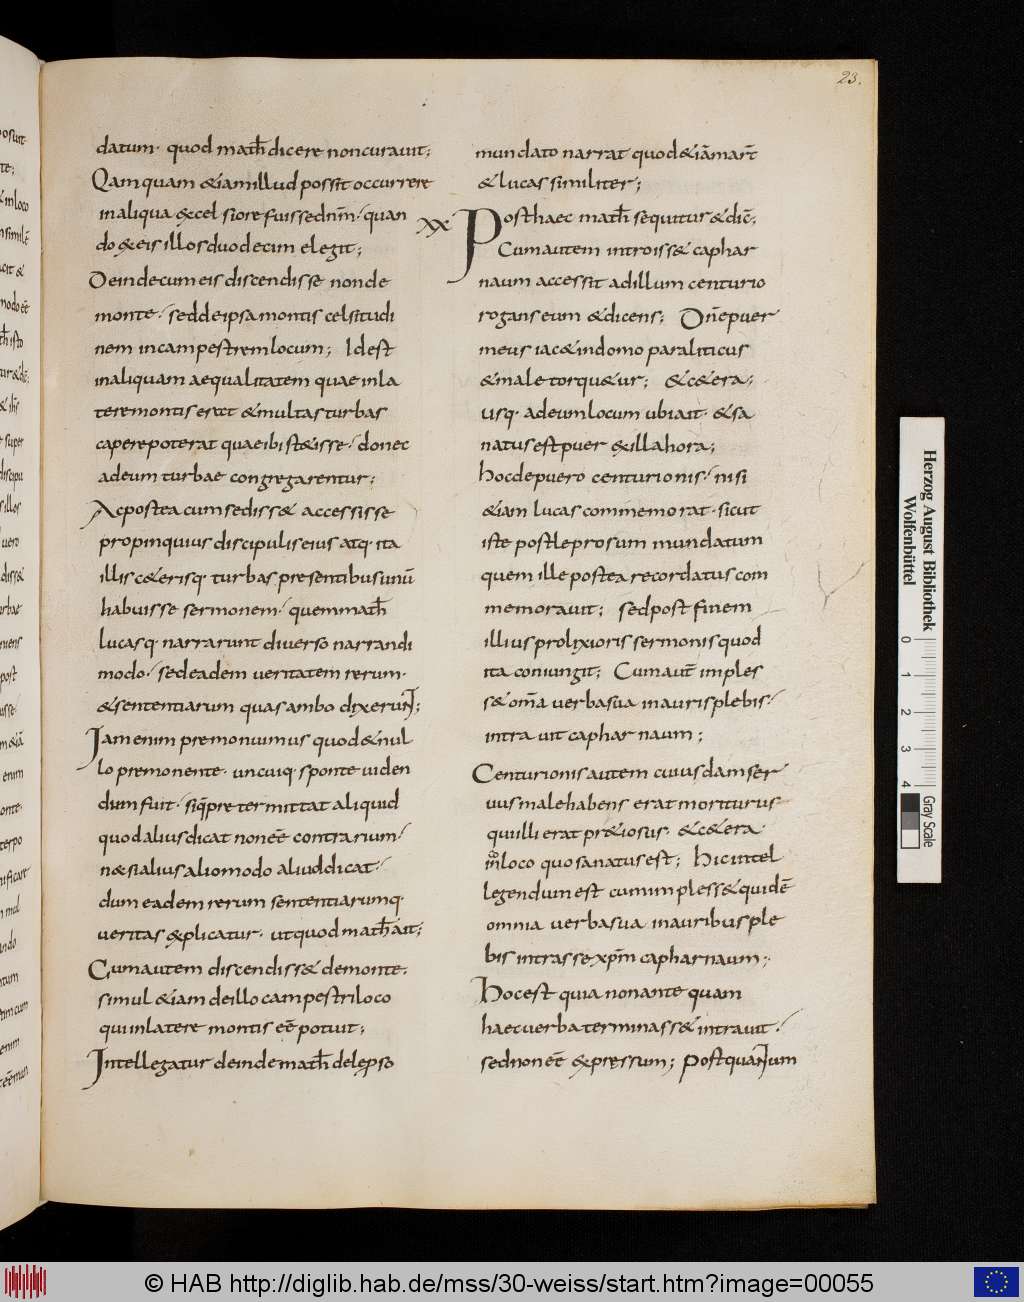 23.
datum· quod math̄ dicere non curauit;
Qam quam & iam illud possit occurrere
in aliqua excelsiore fuisse dn̄m· quan
do ex eis illos duodecim elegit;
Deinde cum eis discendisse non de
monte· sed de ipsa montis celsitudi
nem in campestrem locum; Id est
in aliquam aequalitatem quae in la
tere montis erat & multas turbas
capere poterat quae ibi st&isse· donec
ad eum turbae congregarentur;
Ac postea cum sediss& accessisse
propinquius discipulis eius atq· ita
illis c&erisq· turbas presentibus unū
habuisse sermonem· quem math̄
lucasq· narrarunt diuerso narrandi
modo· sed eadem ueritatem rerum·
& sententiarum quas ambo dixerunt;
Iam enim premonuimus quod & nul
lo premonente· unicuiq· sponte uiden
dum fuit· si q̄ pretermittat aliquid
quod alius dicat non eē contrarium·
n& si alius alio modo aliud dicat·
dum eadem rerum sententiarumq·
ueritas explicatur· ut quod math̄ ait;
Cum autem discendiss& de monte·
simul & iam de illo campestri loco
qui in latere montis eē potuit;
Intellegatur deinde math̄ de lepso
mundato narrat quod & iā mart̄
& lucas similiter;
XX Post haec math̄ sequitur & dic̄·
Cum autem introiss& caphar
naum accessit ad illum centurio
rogans eum & dicens; Dn̄e puer
meus iac& in domo paraliticus
& male torqu&ur; & c&era·
usq· ad eum locum ubi ait· & sa
natus est puer ex illa hora;
Hoc de puero centurionis· nisi
&iam lucas commemorat· sicut
iste post leprosum mundatum
quem ille postea recordatus com
memorauit; sed post finem
illius prolixioris sermonis quod
ita coniungit; Cum aut̄ imples
s& om̄a uerba sua in auris plebis·
intrauit capharnaum;
Centurionis autem cuiusdam ser
uus male habens erat moriturus
qui illi erat pr&iosus· & c&era·
in loco quo sanatus est; hic intel
legendum est cum impless& quidē
omnia uerba sua in auribus ple
bis intrasse xp̄m capharnaum;
Hoc est quia non antequam
haec uerba terminass& intrauit·
sed non eē expressum; postquantum
Herzog August Bibliothek
Wolfenbüttel
0 1 2 3 4
Gray Scale
© HAB http://diglib.hab.de/mss/30-weiss/start.htm?image=00055